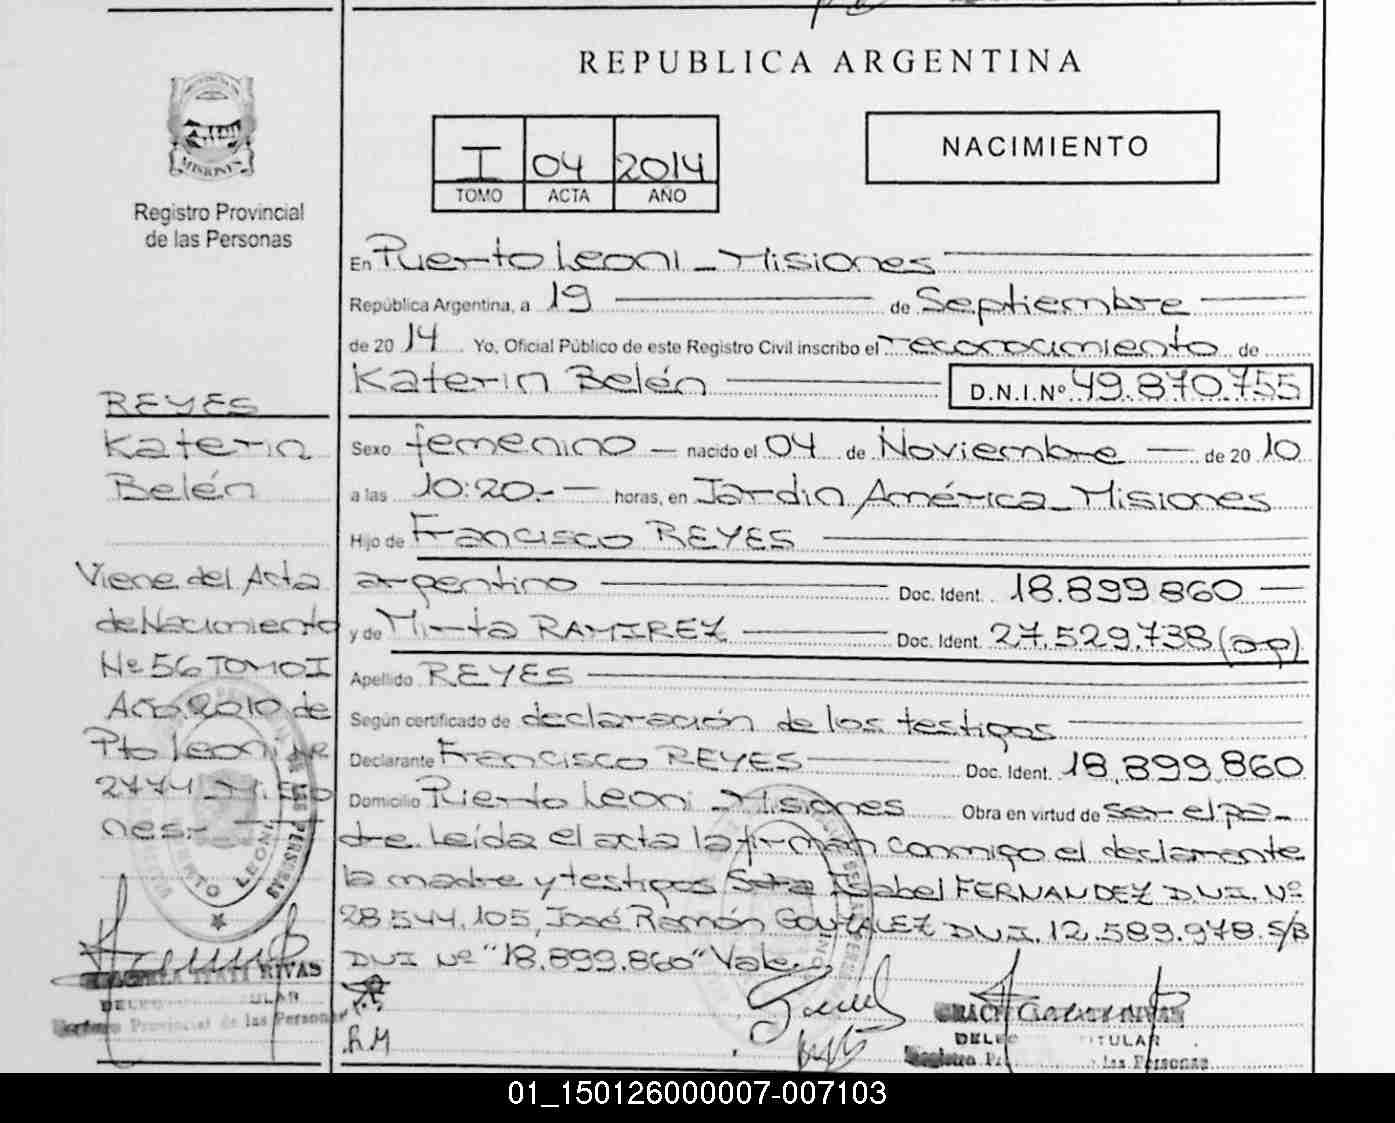 REPUBLICA ARGENTINA
MISIONES
Registro Provincial
de las Personas
I 04 2014
TOMO ACTA AÑO
NACIMIENTO
En Puerto Leoni - Misiones
República Argentina, a 19 de Septiembre
de 2014 Yo, Oficial Público de este Registro Civil inscribo el reconocimiento de
Katerin Belén D.N.I.Nº 49.870.755
REYES
Katerin
Belén
Viene del Acta
de Nacimiento
Nº 56 TOMO I
Año 2010 de
Pto Leoni
nes.-
Sexo femenino nacido el 04 de Noviembre de 2010
a las 10:20.- horas, en Jardin América - Misiones
Hijo de Francisco REYES
argentino Doc. Ident. 18.899.860
y de Mirta RAMIREZ Doc. Ident. 27.529.738 (ap)
Apellido REYES
Según certificado de declaración de los testigos
Declarante Francisco REYES Doc. Ident. 18.899.860
Domicilio Puerto Leoni - Misiones Obra en virtud de ser el pa-
dre. Leída el acta la firman conmigo el declarante
la madre y testigos Isabel FERNANDEZ D.N.I. Nº
28.544.105, José Ramón GONZALEZ D.N.I. 12.589.978. S/B
DNI Nº "18.899.860" Vale.
R.M
RIVAS
Provincial de las Personas
TITULAR
Registro
las Personas
01_150126000007-007103